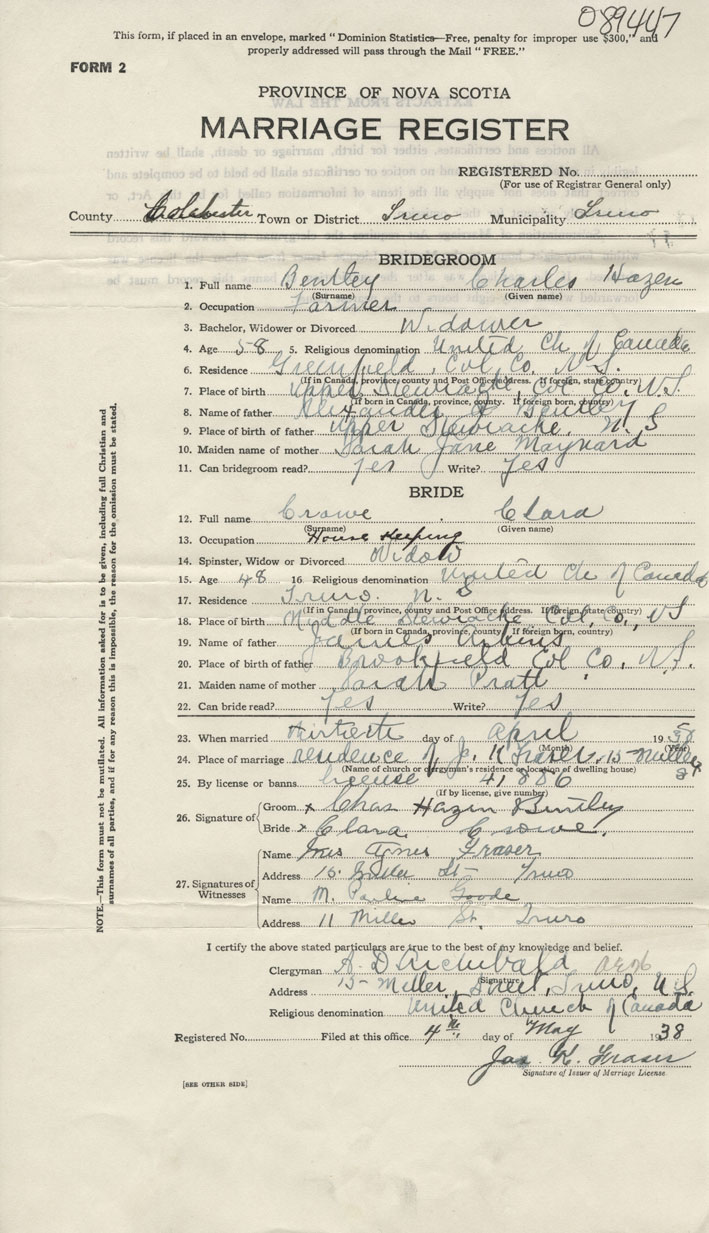 089447
This form, if placed in an envelope, marked "Dominion Statistics—Free, penalty for improper use $300," and
properly addressed will pass through the Mail "FREE."
FORM 2
PROVINCE OF NOVA SCOTIA
MARRIAGE REGISTER
REGISTERED No.
(For use of Registrar General only)
County Colchester Town or District Truro Municipality Truro
BRIDEGROOM
1. Full name Bentley Charles Hazen
(Surname) (Given name)
2. Occupation Farmer
3. Bachelor, Widower or Divorced Widower
4. Age 58 5. Religious denomination United Ch of Canada
6. Residence Greenfield, Col. Co. N.S.
(If in Canada, province, county and Post Office address. If foreign, state country)
7. Place of birth Upper Stewiacke Col. Co. N.S
(If born in Canada, province, county. If foreign born, country)
8. Name of father Alexander Bentley
9. Place of birth of father Upper Stewiacke, N.S
10. Maiden name of mother Sarah Jane Maynard
11. Can bridegroom read? Yes Write? Yes
BRIDE
12. Full name Crowe Clara
(Surname) (Given name)
13. Occupation House Keeping
14. Spinster, Widow or Divorced Widow
15. Age 48 16 Religious denomination United Ch of Canada
17. Residence Truro. N. S
(If in Canada, province, county and Post Office address. If foreign, state country)
18. Place of birth Middle Stewiacke Col, Co., N S
(If born in Canada, province, county If foreign born, country)
19. Name of father James
20. Place of birth of father Brookfield Col Co. N.S.
21. Maiden name of mother Sarah Pratt
22. Can bride read? Yes Write? Yes
23. When married thirtieth day of April 19 38
(Month) (Year)
24. Place of marriage residence of J. K Fraser, 15 Miller
(Name of church or clergyman's residence or location of dwelling house)
25. By license or banns license 41,886
(If by license, give number)
26. Signature of
Groom x Chas Hazen Bentley
Bride x Clara Crowe.
27. Signatures of Witnesses
Name Mrs Agnes Fraser
Address 15. Miller St- Truro
Name M. Pauline Goode
Address 11 Miller St. Truro
I certify the above stated particulars are true to the best of my knowledge and belief.
Clergyman A. D Archibald
(Signature)
Address 15- Miller Street, Truro, N.S.
Religious denomination United Church of Canada
Registered No. Filed at this office 4th day of May 1938
Jas K. Fraser
Signature of Issuer of Marriage License.
[SEE OTHER SIDE]
NOTE.—This form must not be mutilated. All information asked for is to be given, including full Christian and
surnames of all parties, and if for any reason this is impossible, the reason for the omission must be stated.